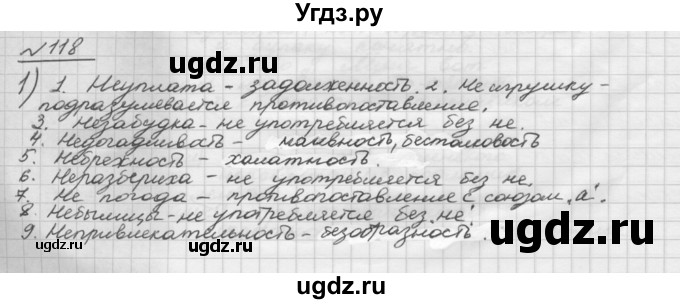 Угдз.ру
№118
1) 1. Неуплата - задолженность. 2. Не игрушку -
подразумевается противопоставление.
3. Незабудка - не употребляется без не.
4. Недогадливость - наивность, бестолковость
5. Небрежность - халатность.
6. Неразбериха - не употребляется без не.
7. Не погода - противопоставление с союзом „а".
8. Небылицы - не употребляется без „не"
9. Непривлекательность - безобразность.
ugdz.ru
ugdz.ru
ugdz.ru
ugdz.ru
ugdz.ru
ugdz.ru
ugdz.ru
ugdz.ru
ugdz.ru
Угдз.ру